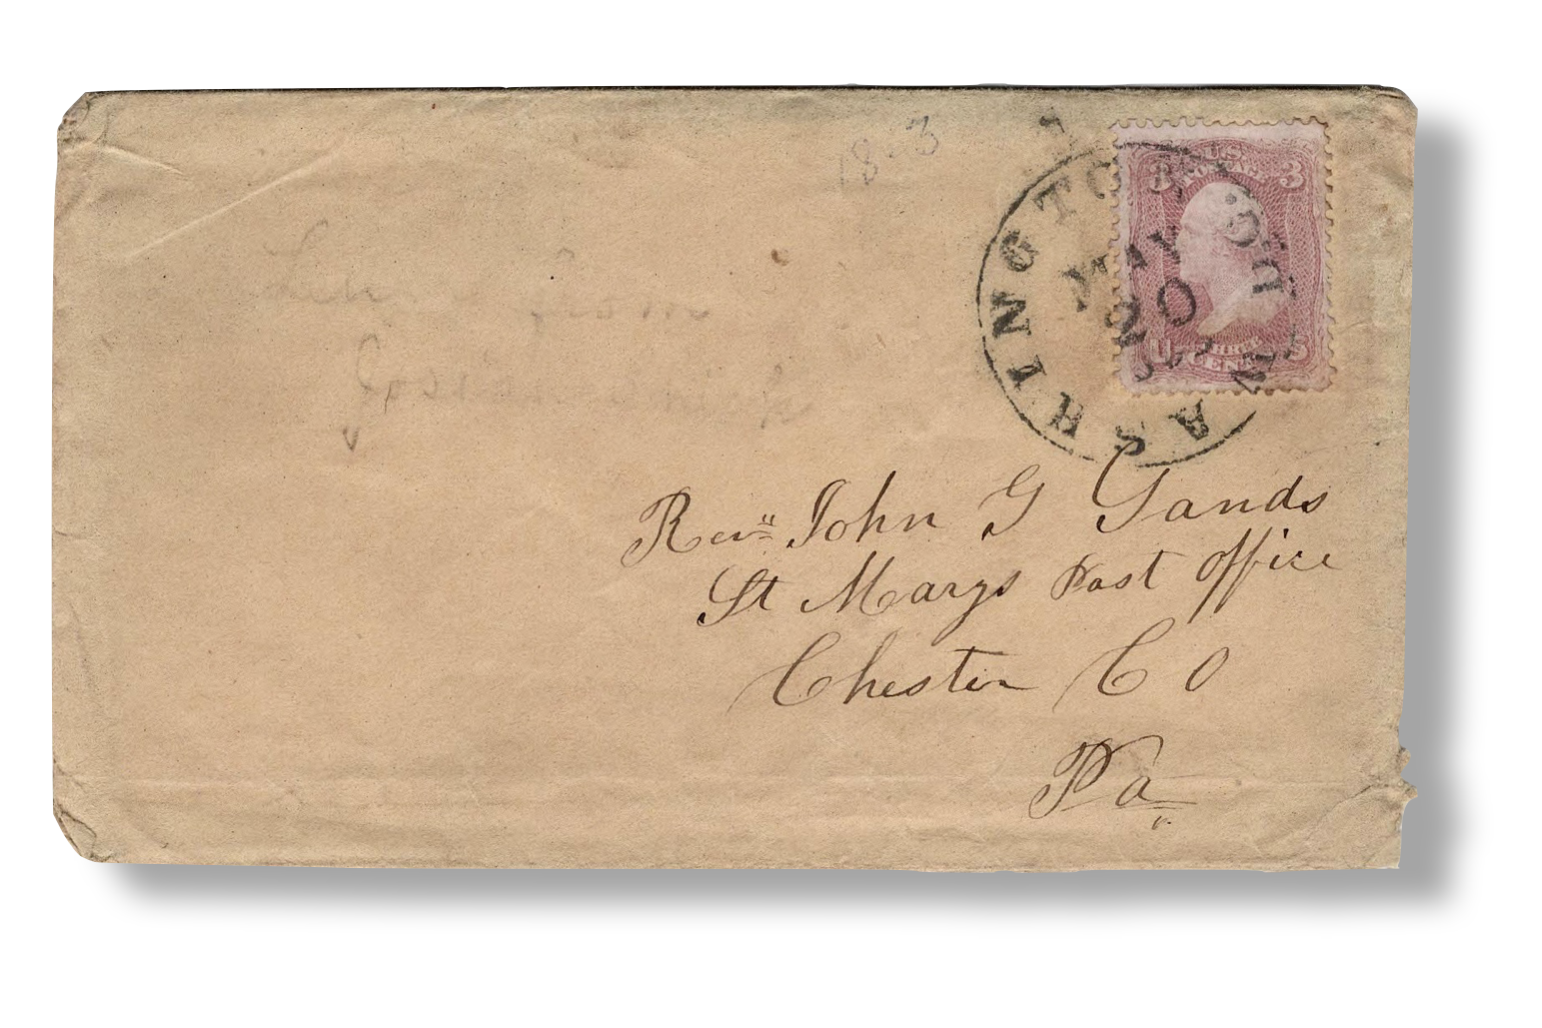 WASHINGTON D.C.
MAY
20
U.S. POSTAGE
3 3
THREE CENTS
U S
Revd John G Sands
St Marys Post office
Chester CO
Pa